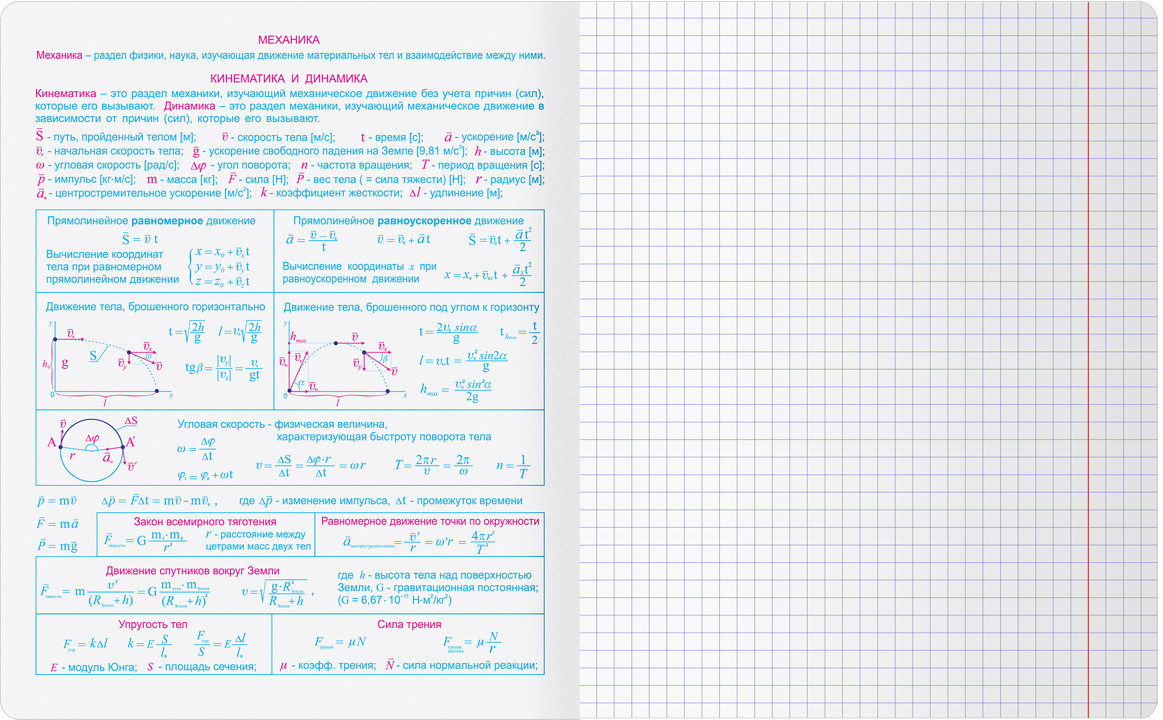 МЕХАНИКА
Механика – раздел физики, наука, изучающая движение материальных тел и взаимодействие между ними.
КИНЕМАТИКА И ДИНАМИКА
Кинематика – это раздел механики, изучающий механическое движение без учета причин (сил),
которые его вызывают. Динамика – это раздел механики, изучающий механическое движение в
зависимости от причин (сил), которые его вызывают.
S⃗ - путь, пройденный телом [м]; v⃗ - скорость тела [м/с]; t - время [с]; a⃗ - ускорение [м/с²];
v⃗₀ - начальная скорость тела; g⃗ - ускорение свободного падения на Земле [9,81 м/с²]; h - высота [м];
ω - угловая скорость [рад/с]; Δφ - угол поворота; n - частота вращения; T - период вращения [с];
p⃗ - импульс [кг·м/с]; m - масса [кг]; F⃗ - сила [Н]; P⃗ - вес тела ( = сила тяжести) [Н]; r - радиус [м];
a⃗ₙ - центростремительное ускорение [м/с²]; k - коэффициент жесткости; Δl - удлинение [м];
Прямолинейное равномерное движение
S⃗ = v⃗ t
Вычисление координат
тела при равномерном
прямолинейном движении
x = x₀ + v⃗ₓt
y = y₀ + v⃗ᵧt
z = z₀ + v⃗zt
Прямолинейное равноускоренное движение
a⃗ = (v⃗ – v⃗₀)/t v⃗ = v⃗₀ + a⃗ t S⃗ = v⃗₀t + a⃗t²/2
Вычисление координаты x при
равноускоренном движении
x = x₀ + v⃗₀ₓt + a⃗ₓt²/2
Движение тела, брошенного горизонтально
t = √(2h/g) l = v₀√(2h/g)
tgβ = |vᵧ|/|vₓ| = v₀/gt
y v⃗₀ h₀ g S v⃗ₓ β v⃗ᵧ v⃗ 0 l x
Движение тела, брошенного под углом к горизонту
t = 2v₀ sinα/g t hmax = t/2
l = v₀ₓt = v₀² sin2α/g
hmax = v₀² sin²α/2g
y hmax v⃗ v⃗ₓ β v⃗ᵧ v⃗ v⃗₀ α 0 l x
v⃗ ΔS A Δφ A′ r a⃗ₙ v⃗′
Угловая скорость - физическая величина,
характеризующая быстроту поворота тела
ω = Δφ/Δt
φₜ = φ₀ + ωt
v = ΔS/Δt = Δφ·r/Δt = ωr T = 2πr/v = 2π/ω n = 1/T
p⃗ = mv⃗ Δp⃗ = F⃗Δt = mv⃗ – mv⃗₀ , где Δp⃗ - изменение импульса, Δt - промежуток времени
F⃗ = ma⃗
P⃗ = mg⃗
Закон всемирного тяготения
F⃗тяжести = G m₁·m₂/r²
r - расстояние между
цетрами масс двух тел
Равномерное движение точки по окружности
a⃗центростремительное = v⃗²/r = ω²r = 4π²r/T²
Движение спутников вокруг Земли
F⃗тяжести = m v²/(RЗемли + h) = G mтела·mЗемли/(RЗемли + h)² v = √(g·R²Земли/(RЗемли + h)) ,
где h - высота тела над поверхностью
Земли, G - гравитационная постоянная;
(G = 6,67·10⁻¹¹ Н·м²/кг²)
Упругость тел
Fупр = kΔl k = E S/l₀ Fупр/S = E Δl/l₀
E - модуль Юнга; S - площадь сечения;
Сила трения
Fтрения = μN Fтрения качения = μ N/r
μ - коэфф. трения; N⃗ - сила нормальной реакции;